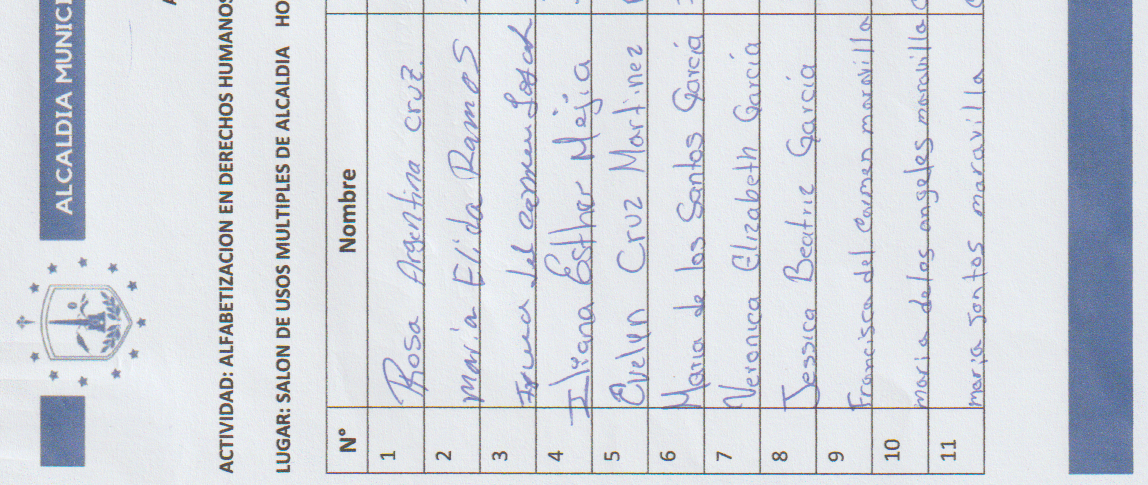 ALCALDIA MUNICI
A
ACTIVIDAD: ALFABETIZACION EN DERECHOS HUMANOS
LUGAR: SALON DE USOS MULTIPLES DE ALCALDIA HO
N° Nombre
1 Rosa Argentina Cruz.
2 Maria Elida Ramos
3 del Carmen
4 Iliana Esther Mejia
5 Evelyn Cruz Martinez
6 Maria de los Santos Garcia
7 Veronica Elizabeth Garcia
8 Jessica Beatriz Garcia
9 Francisca del Carmen maravilla
10 maria delos angeles maravilla
11 maria santos maravilla